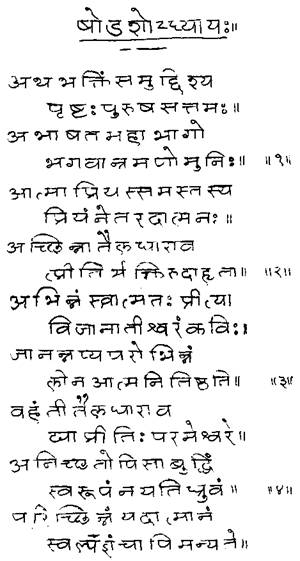 षोडशोऽध्यायः॥
अथ भक्तिं समुद्दिश्य
पृष्टः पुरुषसत्तमः॥
अभाषत महाभागो
भगवान्रमणो मुनिः॥ ॥१॥
आत्मा प्रियस्समस्तस्य
प्रियं नेतरदात्मनः॥
अच्छिन्ना तैलधाराव
त्प्रीतिर्भक्तिरुदाहृता॥ ॥२॥
अभिन्नं स्वात्मतः प्रीत्या
विजानातीश्वरं कविः।
जानन्नप्यपरो भिन्नं
लीन आत्मनि तिष्ठते॥ ॥३॥
वहंती तैलधाराव
द्या प्रीतिः परमेश्वरे॥
अनिच्छतोपि सा बुद्धिं
स्वरूपं नयति ध्रुवं॥ ॥४॥
परिच्छिन्नं यदात्मानं
स्वल्पज्ञं चापि मन्यते॥